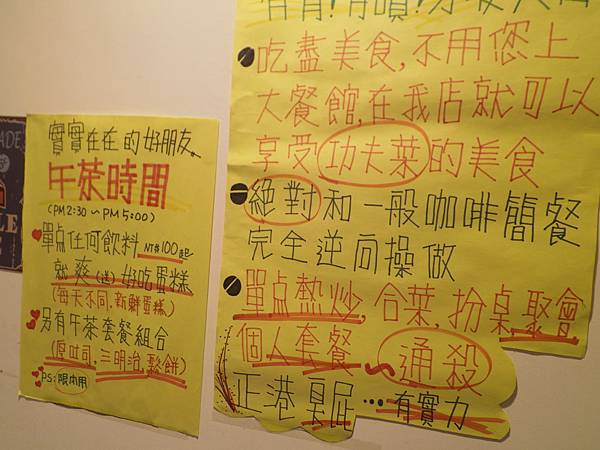 實實在在的好朋友。
午茶時間
(PM2:30~PM5:00)
單点任何飲料 NT$100起
就爽(送)好吃蛋糕
(每天不同.新鮮蛋糕)
另有午茶套餐組合
(厚吐司,三明治,鬆餅)
PS:限內用
吃盡美食,不用您上
大餐館,在我店就可以
享受功夫菜的美食
絕對和一般咖啡簡餐
完全逆向操做
單点熱炒,合菜,扮桌聚會
個人套餐~通殺
正港臭屁…有實力